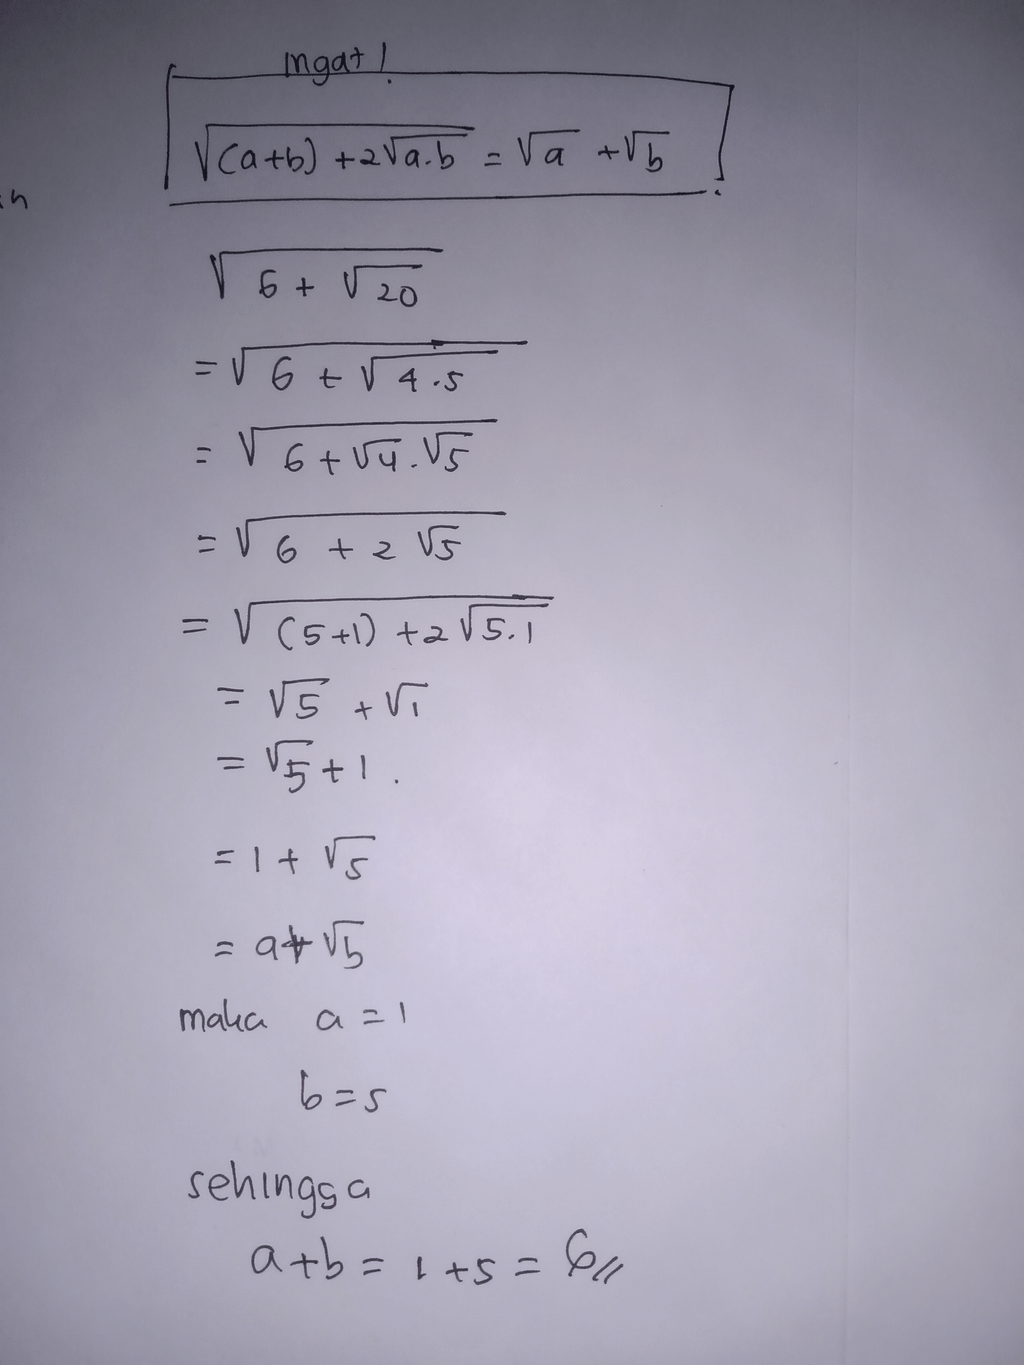 ingat!
√((a+b) + 2√(a.b)) = √a + √b
√(6 + √20)
= √(6 + √(4.5))
= √(6 + √4.√5)
= √(6 + 2√5)
= √((5+1) + 2√(5.1))
= √5 + √1
= √5 + 1.
= 1 + √5
= a + √b
maka a = 1
b = 5
sehingga
a + b = 1 + 5 = 6//